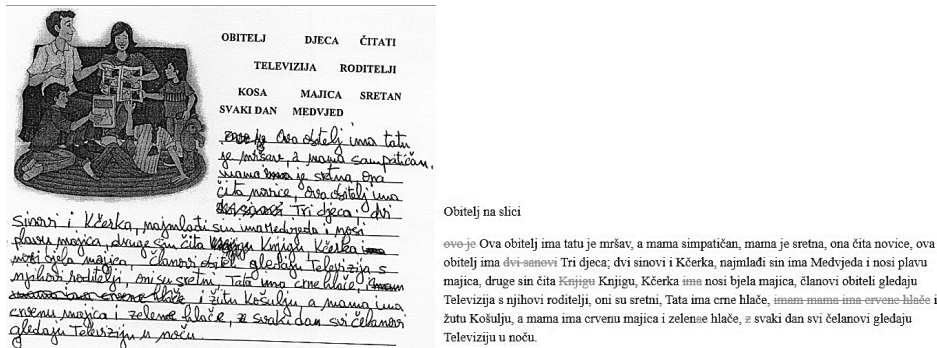 OBITELJ DJECA ČITATI
TELEVIZIJA RODITELJI
KOSA MAJICA SRETAN
SVAKI DAN MEDVJED
ovo je Ova obitelj ima tatu
je mršav, a mama sampatičan,
mama je sretna, ona
čita novice, ova obitelj ima
dvi sanovi Tri djeca; dvi
sinovi i Kčerka, najmlađi sin ima Medvjeda i nosi
plavu majica, druge sin čita Knjigu Knjigu, Kčerka ima
nosi bjela majica, članovi obiteli gledaju Televizija s
njihovi roditelji, oni su sretni, Tata ima crne hlače, imam
mama ima crvene hlače i žutu Košulju, a mama ima
crvenu majica i zelene hlače, z svaki dan svi čelanovi
gledaju Televiziju u noču.
Obitelj na slici
ovo je Ova obitelj ima tatu je mršav, a mama simpatičan, mama je sretna, ona čita novice, ova
obitelj ima dvi sanovi Tri djeca; dvi sinovi i Kčerka, najmlađi sin ima Medvjeda i nosi plavu
majica, druge sin čita Knjigu Knjigu, Kčerka ima nosi bjela majica, članovi obiteli gledaju
Televizija s njihovi roditelji, oni su sretni, Tata ima crne hlače, imam mama ima crvene hlače i
žutu Košulju, a mama ima crvenu majica i zelenae hlače, z svaki dan svi čelanovi gledaju
Televiziju u noču.